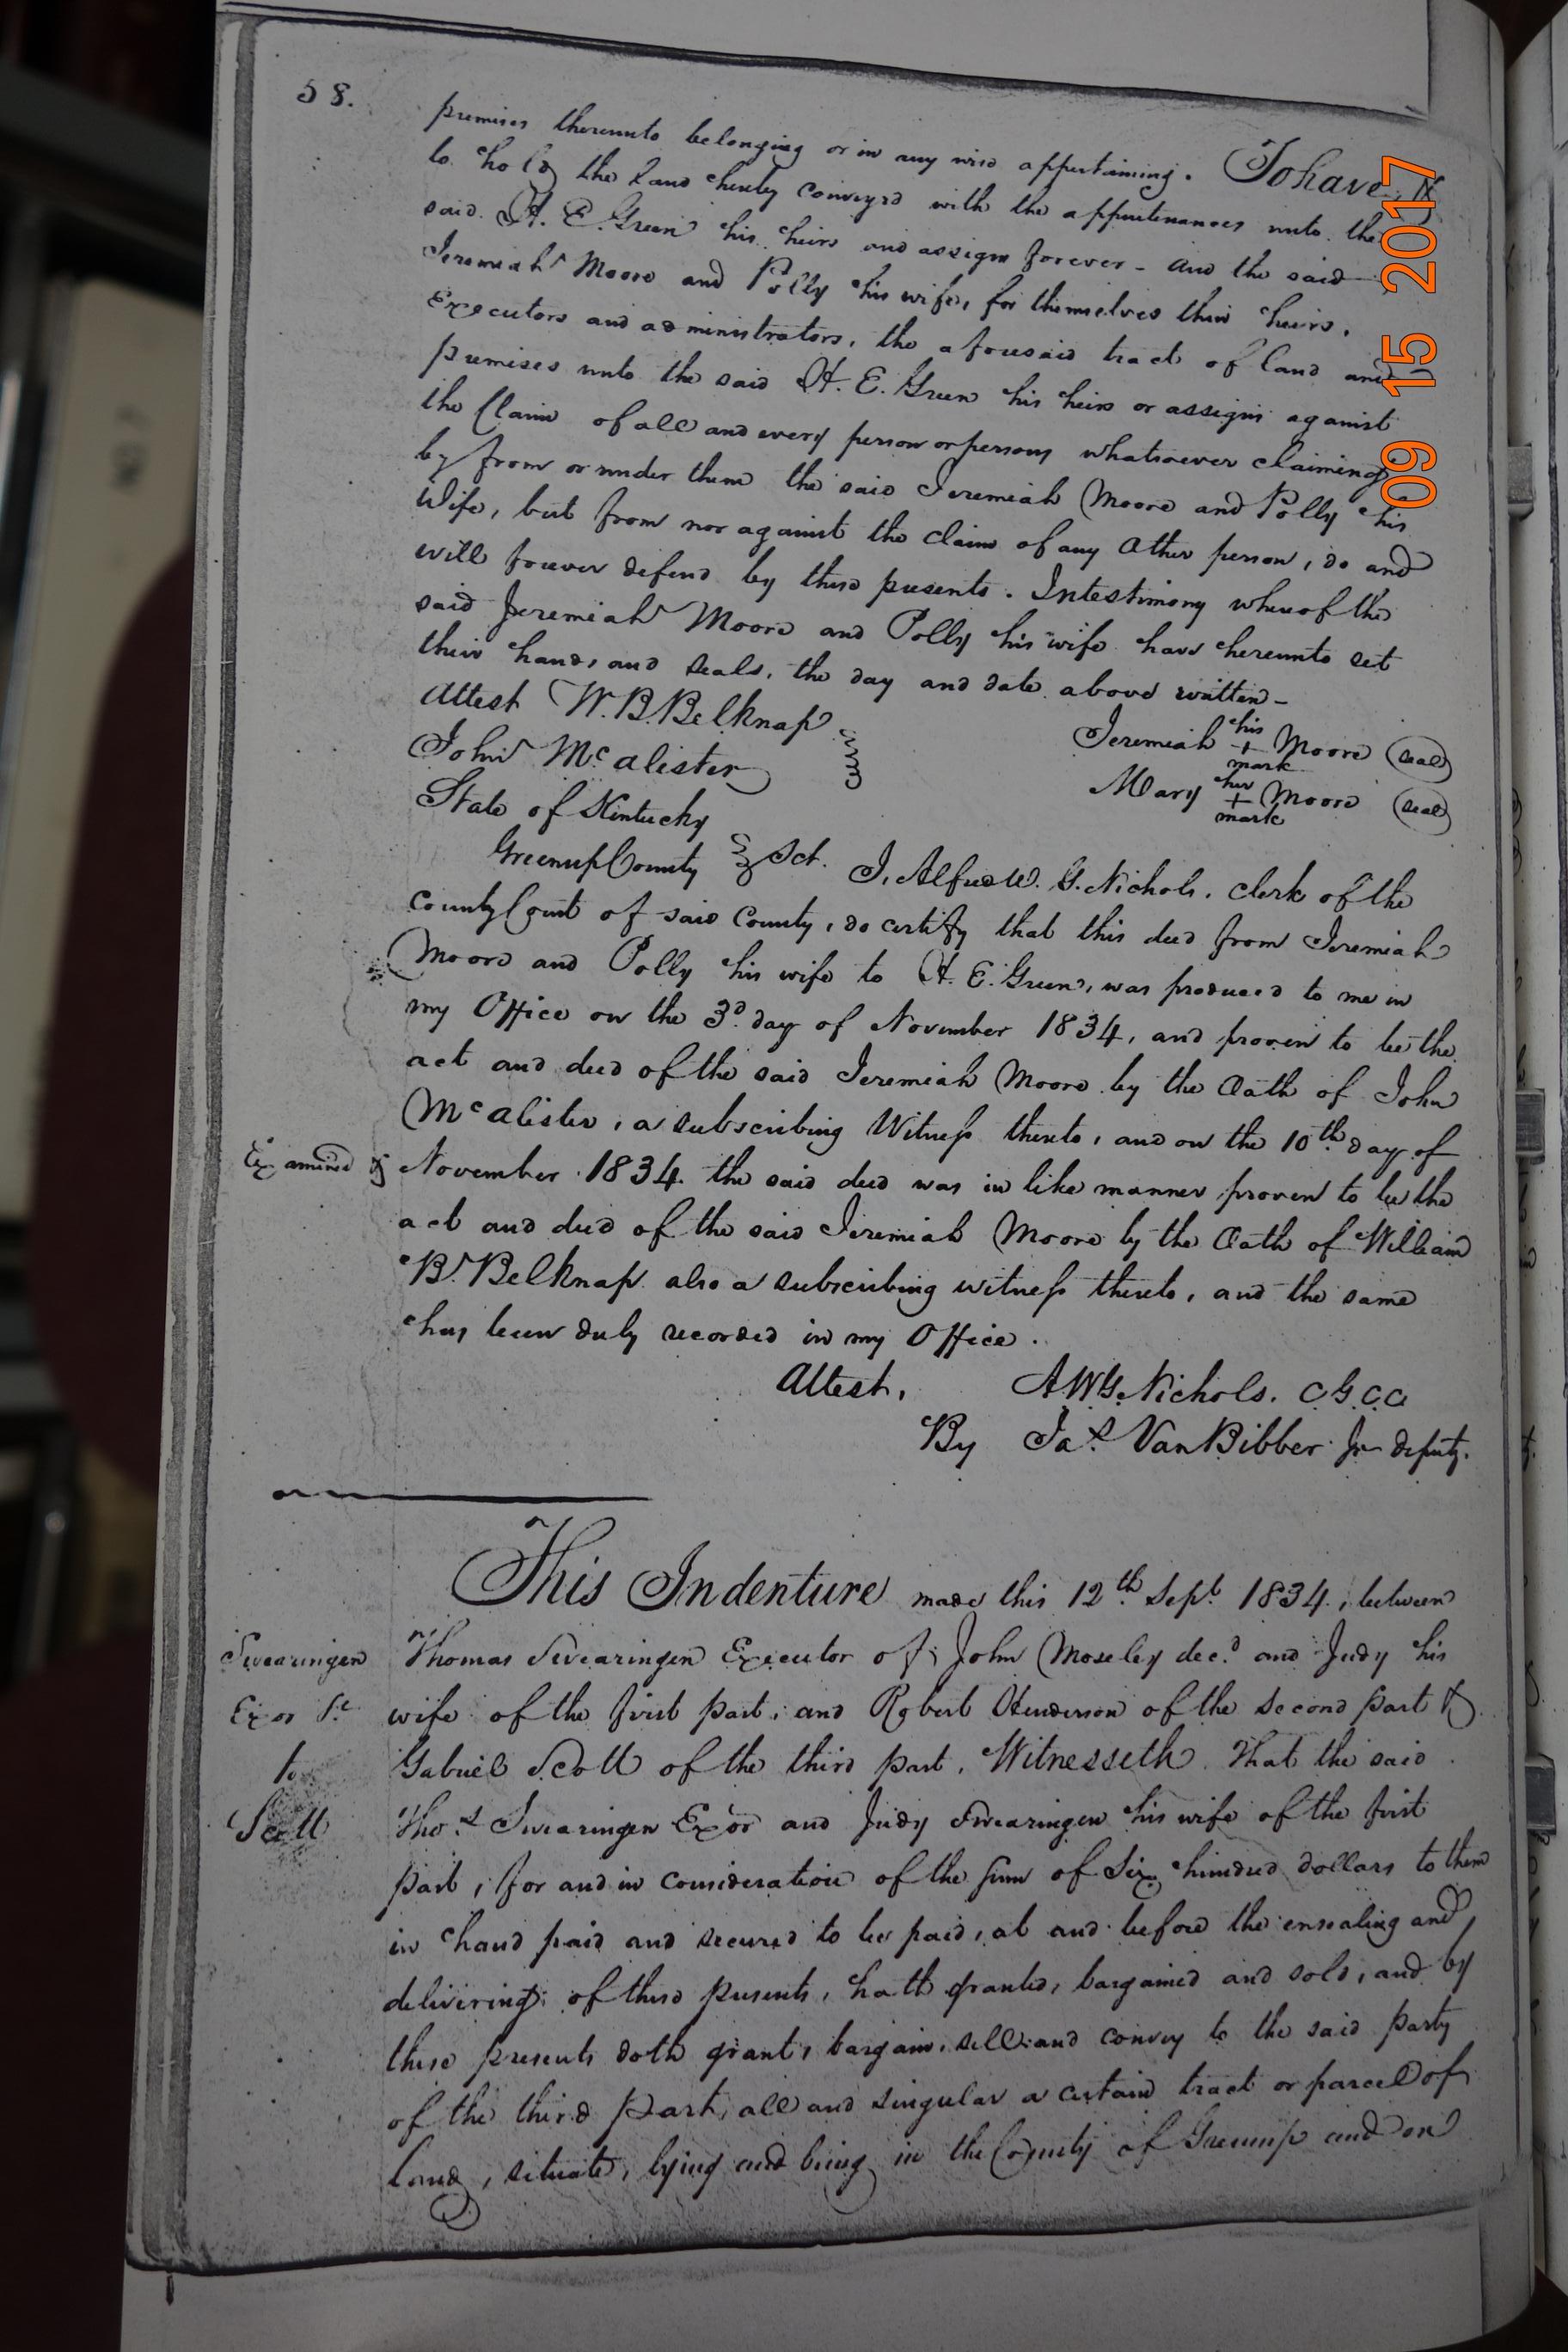 58.
premises thereunto belonging or in any wise appertaining. To have &
to hold the land hereby conveyed with the appurtenances unto the
said H. E. Green his heirs and assigns forever - and the said
Jeremiah Moore and Polly his wife, for themselves their heirs,
Executors and administrators, the aforesaid tract of land and
premises unto the said H. E. Green his heirs or assigns against
the Claim of all and every person or persons whatsoever claiming
by from or under them the said Jeremiah Moore and Polly his
Wife, but from nor against the claim of any other person, do and
will forever defend by these presents. In testimony whereof the
said Jeremiah Moore and Polly his wife have hereunto set
their hands and seals, the day and date above written -
Attest W. B. Belknap
John McAlister
Jeremiah his + mark Moore (seal)
Mary her + mark Moore (seal)
State of Kentucky
Greenup County Sct. I, Alfred W. G. Nichols, Clerk of the
County Court of said County, do certify that this deed from Jeremiah
Moore and Polly his wife to H. E. Green, was produced to me in
my Office on the 3d. day of November 1834, and proven to be the
act and deed of the said Jeremiah Moore by the Oath of John
McAlister, a subscribing Witness thereto, and on the 10th day of
Examined &
November 1834. the said deed was in like manner proven to be the
act and deed of the said Jeremiah Moore by the Oath of William
B. Belknap also a subscribing witness thereto, and the same
has been duly recorded in my Office.
Attest, A W G. Nichols. C. G. C. C
By Jas. VanBibber Jr deputy.
This Indenture made this 12th. Sept. 1834, between
Swearingen
Exor &c
to
Scott
Thomas Swearingen Executor of John Moseley decd. and Judy his
wife of the first part, and Robert Henderson of the second part &
Gabriel Scott of the third part, Witnesseth. That the said
Thos. Swearingen Exor and Judy Swearingen his wife of the first
part, for and in consideration of the sum of Six hundred dollars to them
in hand paid and secured to be paid, at and before the ensealing and
delivering of these presents, hath granted, bargained and sold, and by
these presents doth grant, bargain, sell and convey to the said party
of the third part, all and singular a certain tract or parcel of
land, situate, lying and being in the County of Greenup and on
09 15 2017